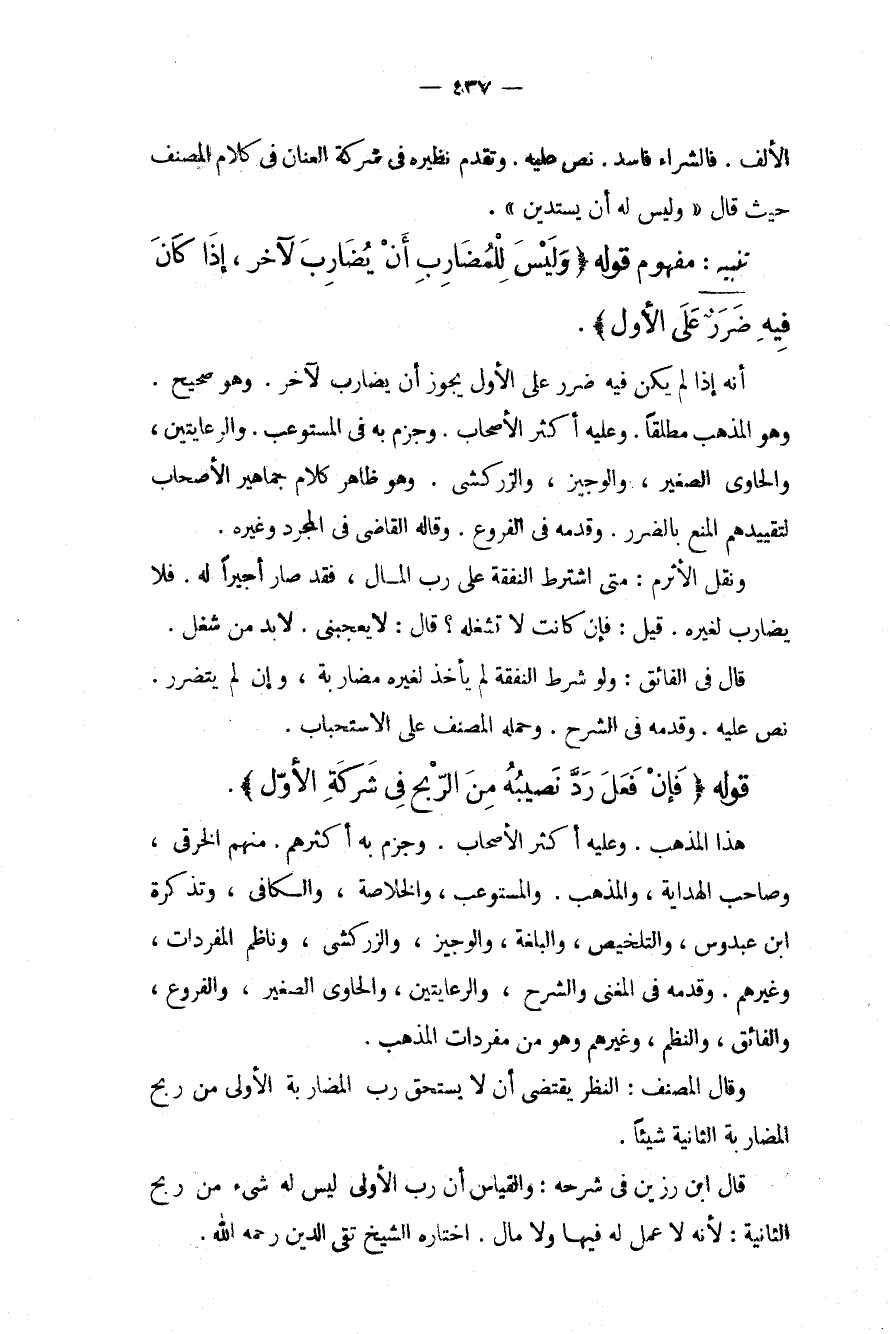 — ٤٣٧ —
الألف . فالشراء فاسد . نص عليه . وتقدم نظيره فى شركة العنان فى كلام المصنف
حيث قال « وليس له أن يستدين » .
تنبيه : مفهوم قوله ﴿ وَلَيْسَ لِلْمُضَارِبِ أَنْ يُضَارِبَ لآخر ، إِذَا كَانَ
فِيهِ ضَرَرٌ عَلَى الأول ﴾ .
أنه إذا لم يكن فيه ضرر على الأول يجوز أن يضارب لآخر . وهو صحيح .
وهو المذهب مطلقاً . وعليه أكثر الأصحاب . وجزم به فى المستوعب . والرعايتين ،
والحاوى الصغير ، والوجيز ، والزركشى . وهو ظاهر كلام جماهير الأصحاب
لتقييدهم المنع بالضرر . وقدمه فى الفروع . وقاله القاضى فى المجرد وغيره .
ونقل الأثرم : متى اشترط النفقة على رب المـال ، فقد صار أجيراً له . فلا
يضارب لغيره . قيل : فإن كانت لا تشغله ؟ قال : لايعجبنى . لابد من شغل .
قال فى الفائق : ولو شرط النفقة لم يأخذ لغيره مضاربة ، وإن لم يتضرر .
نص عليه . وقدمه فى الشرح . وحمله المصنف على الاستحباب .
قوله ﴿ فَإِنْ فَعَلَ رَدَّ نَصيبُهُ مِنَ الرِّبْحِ فِى شَرِكَةِ الأوّل ﴾ .
هذا المذهب . وعليه أكثر الأصحاب . وجزم به أكثرهم . منهم الخرقى ،
وصاحب الهداية ، والمذهب . والمستوعب ، والخلاصة ، والـكافى ، وتذكرة
ابن عبدوس ، والتلخيص ، والبلغة ، والوجيز ، والزركشى ، وناظم المفردات ،
وغيرهم . وقدمه فى المغنى والشرح ، والرعايتين ، والحاوى الصغير ، والفروع ،
والفائق ، والنظم ، وغيرهم وهو من مفردات المذهب .
وقال المصنف : النظر يقتضى أن لا يستحق رب المضاربة الأولى من ربح
المضاربة الثانية شيئاً .
قال ابن رزين فى شرحه : والقياس أن رب الأولى ليس له شىء من ربح
الثانية : لأنه لا عمل له فيهـا ولا مال . اختاره الشيخ تقى الدين رحمه الله .